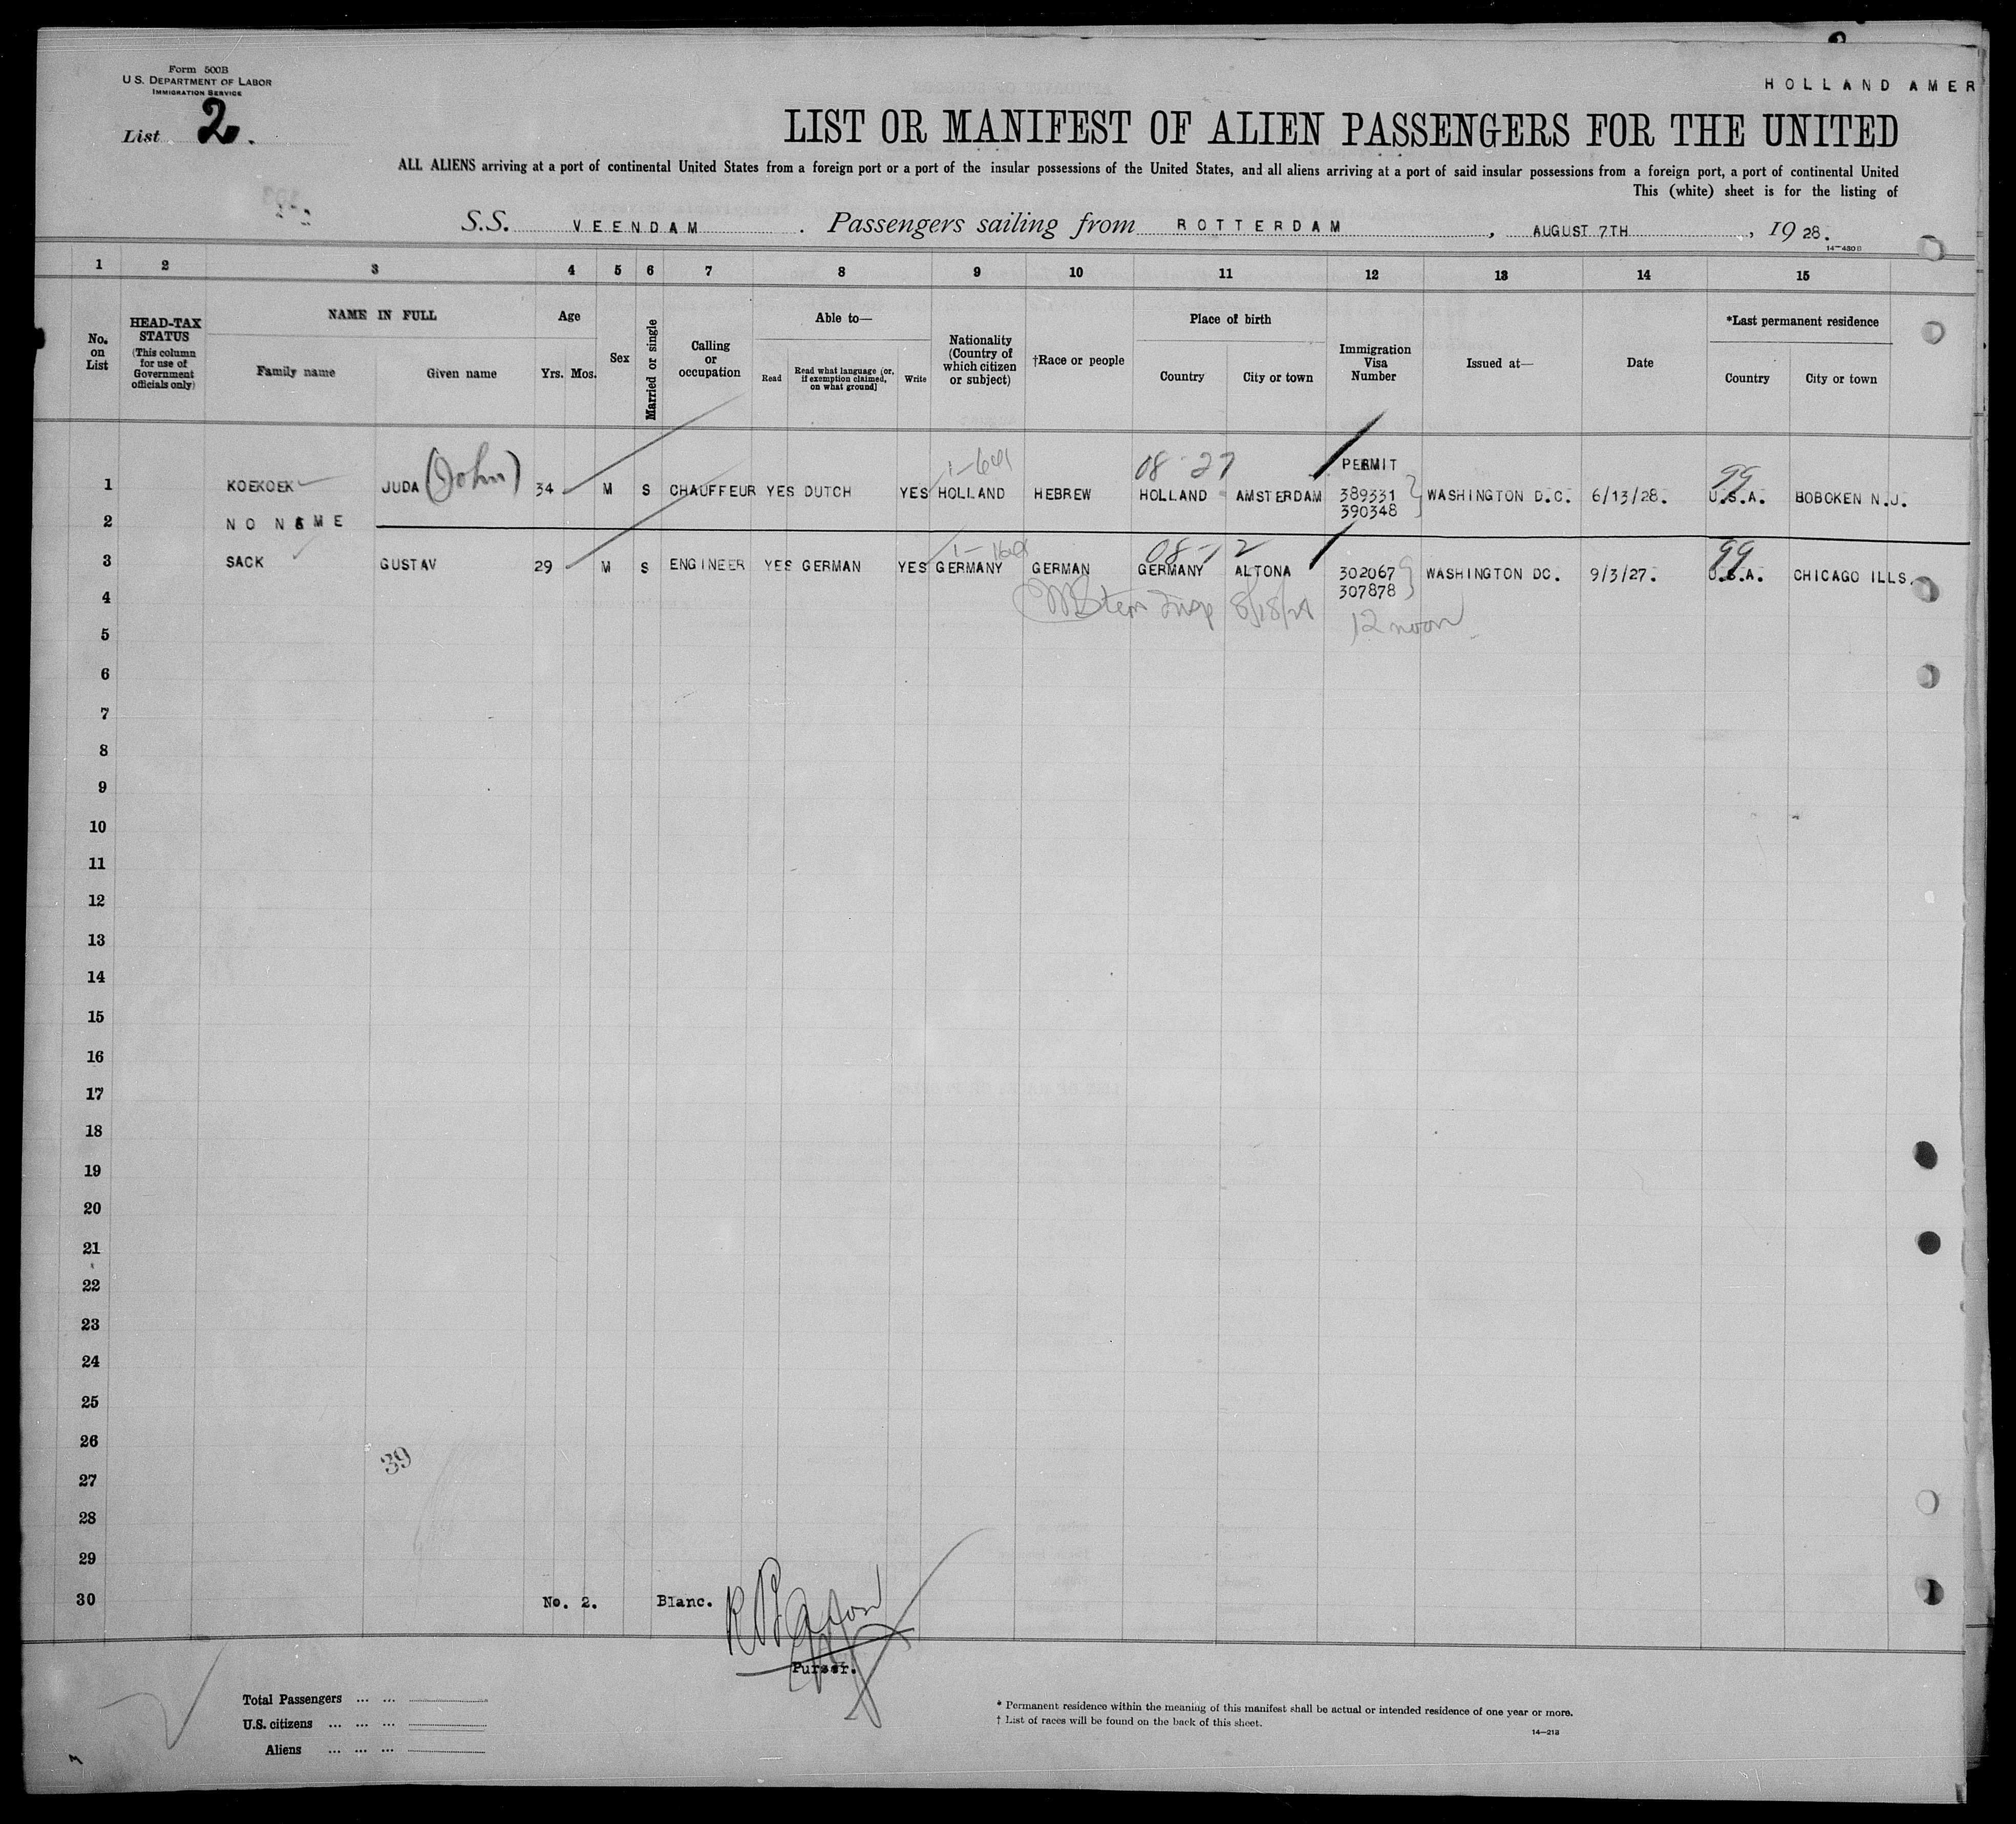 Form 500B
U.S. DEPARTMENT OF LABOR
IMMIGRATION SERVICE
List 2.
HOLLAND AMER
LIST OR MANIFEST OF ALIEN PASSENGERS FOR THE UNITED
ALL ALIENS arriving at a port of continental United States from a foreign port or a port of the insular possessions of the United States, and all aliens arriving at a port of said insular possessions from a foreign port, a port of continental United
This (white) sheet is for the listing of
S.S. VEENDAM . Passengers sailing from ROTTERDAM , AUGUST 7TH , 19 28.
14-430B
1 2 3 4 5 6 7 8 9 10 11 12 13 14 15
No. on List
HEAD-TAX STATUS (This column for use of Government officials only)
NAME IN FULL
Family name Given name
Age
Yrs. Mos.
Sex
Married or single
Calling or occupation
Able to—
Read Read what language (or, if exemption claimed, on what ground) Write
Nationality (Country of which citizen or subject)
†Race or people
Place of birth
Country City or town
Immigration Visa Number
Issued at—
Date
*Last permanent residence
Country City or town
08-27 PERMIT 99
1 KOEKOEK JUDA (John) 34 M S CHAUFFEUR YES DUTCH YES HOLLAND HEBREW HOLLAND AMSTERDAM 389331 WASHINGTON D.C. 6/13/28. U.S.A. BOBOKEN N.J.
390348
2 NO NAME
08-12 99
3 SACK GUSTAV 29 M S ENGINEER YES GERMAN YES GERMANY GERMAN GERMANY ALTONA 302067 WASHINGTON DC. 9/3/27. U.S.A. CHICAGO ILLS.
307878
4 Stern Insp
12 noon
5
6
7
8
9
10
11
12
13
14
15
16
17
18
19
20
21
22
23
24
25
26
39
27
28
29
30 No. 2. Blanc.
Purser.
Total Passengers ... ...
U.S. citizens ... ... ...
Aliens ... ... ...
* Permanent residence within the meaning of this manifest shall be actual or intended residence of one year or more.
† List of races will be found on the back of this sheet.
14-213